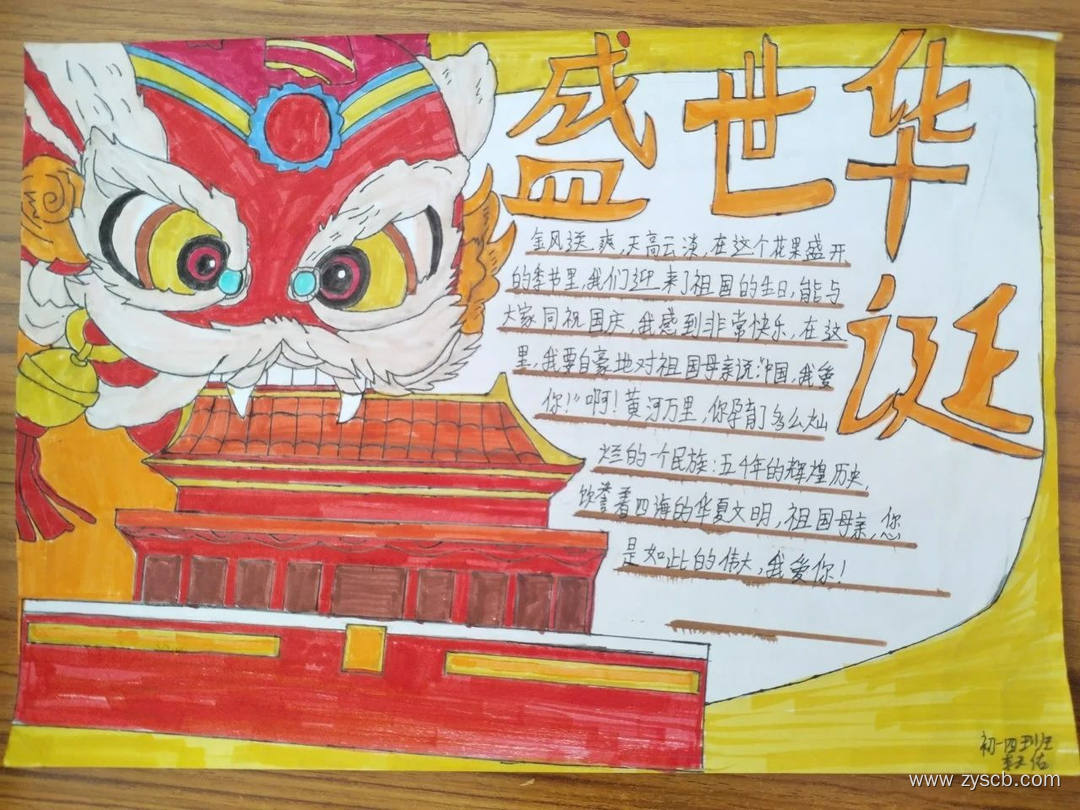 盛世华诞
金风送爽,天高云淡,在这个花果盛开
的季节里,我们迎来了祖国的生日,能与
大家同祝国庆,我感到非常快乐,在这
里,我要自豪地对祖国母亲说:“中国,我爱
你!”啊!黄河万里,你孕育了多么灿
烂的一个民族:五千年的辉煌历史,
饮誉着四海的华夏文明,祖国母亲,您
是如此的伟大,我爱你!
初一四班
佑
www.zyscb.com